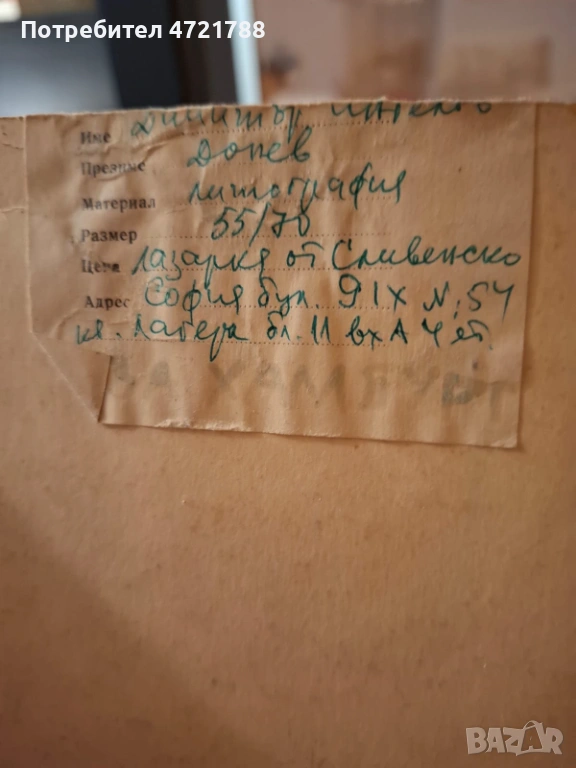 Потребител 4721788
Име Димитър
Презиме Допев
Материал литография
Размер 55/70
Цена Лазарка от Сливенско
Адрес София бул. 9 IX №: 54
кв. Лагера бл. 11 вх А 4 ет.
BAZAR